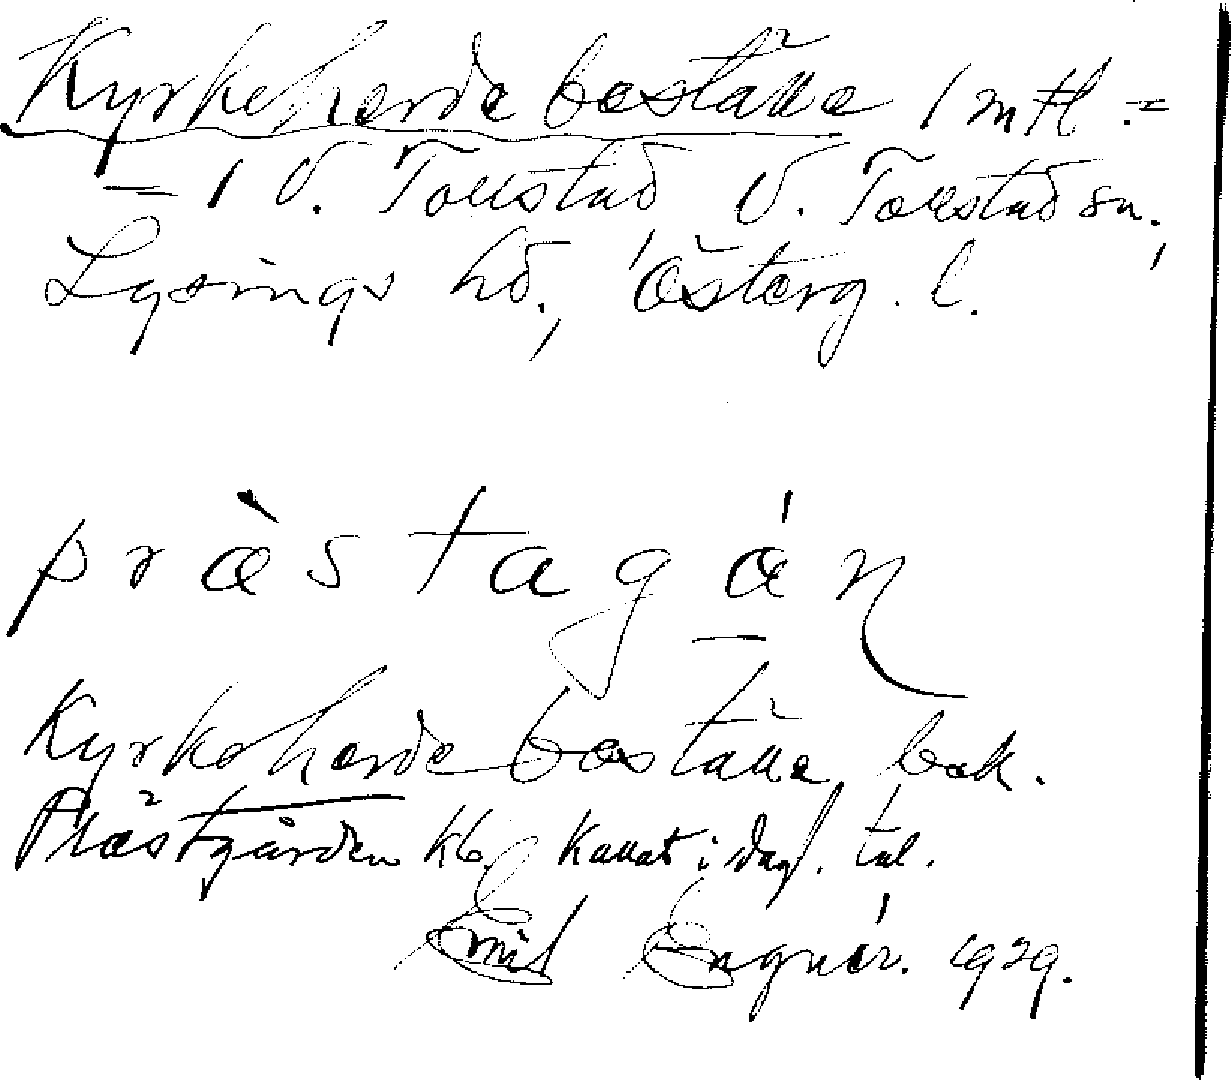 Kyrkoherde boställe 1 mtl =
= 1 V. Tollstad V. Tollstad sn.,
Lysings hd., Österg. l.
prὰstagán
Kyrkoherde boställe, bok.
Prästgården kb. Kallat i dagl. tal.
Emil Engnér. 1929.